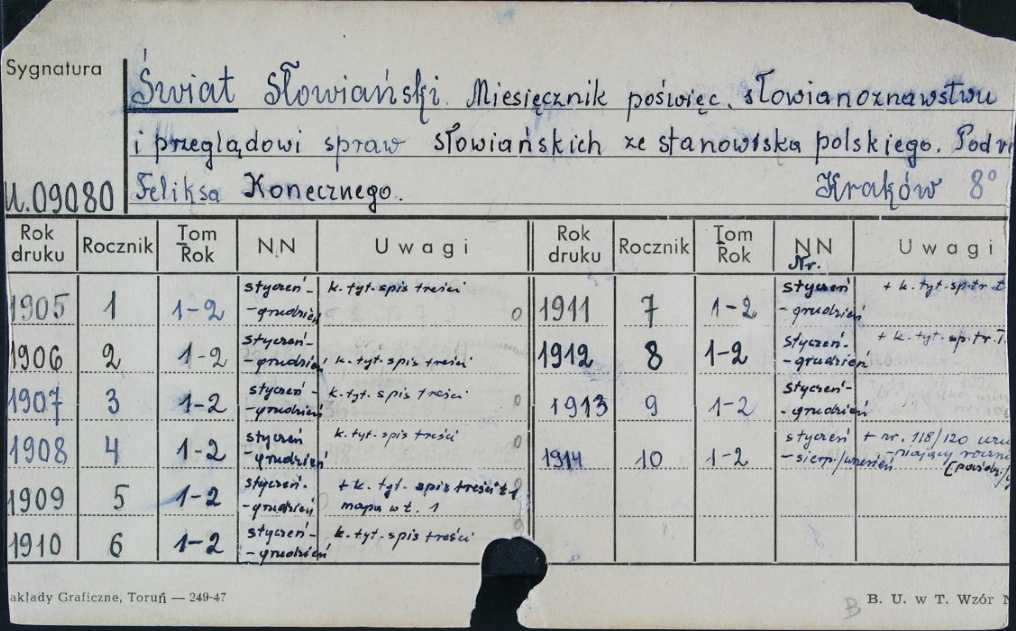 Sygnatura
Świat Słowiański. Miesięcznik poświęc. słowianoznawstwu
i przeglądowi spraw słowiańskich ze stanowiska polskiego. Pod
U.09080 Feliksa Konecznego. Kraków 8°
Rok druku Rocznik Tom Rok N.N Uwagi Rok druku Rocznik Tom Rok NN Nr. Uwagi
1905 1 1-2 styczeń- -grudzień k. tyt-spis treści 0
1906 2 1-2 styczeń- -grudzień k. tyt-spis treści
1907 3 1-2 styczeń- -grudzień k. tyt-spis treści 0
1908 4 1-2 styczeń -grudzień k. tyt-spis treści 0
1909 5 1-2 styczeń. -grudzień + k. tyt. spis treści t. 1 mapa w t. 1
1910 6 1-2 styczeń- -grudzień k. tyt-spis treści
1911 7 1-2 styczeń -grudzień + k. tyt-sp.tr.
1912 8 1-2 styczeń. -grudzień + k. tyt-sp.tr.
1913 9 1-2 styczeń- -grudzień
1914 10 1-2 styczeń -sierp./wrzesień + nr. 118/120
akłady Graficzne, Toruń — 249-47 B B. U. w T. Wzór N